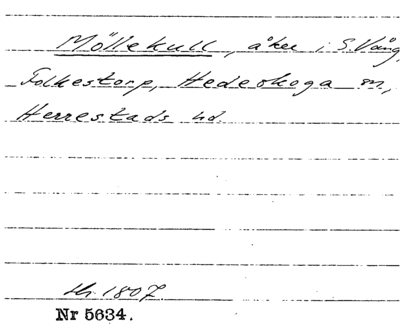 Möllekull, åker i S. Vång,
Folkestorp, Hedeskoga sn,
Herrestads hd.
1807.
Nr 5634.